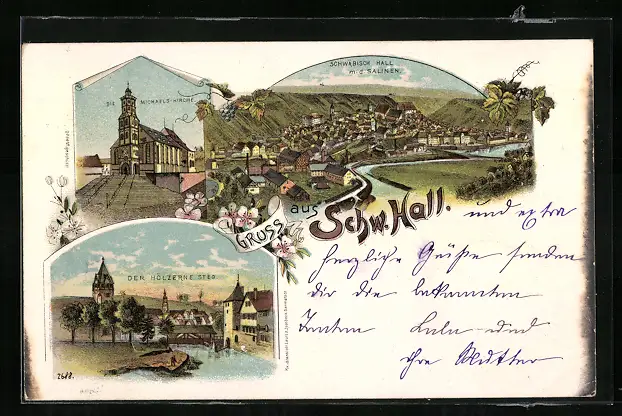 DIE MICHAELS-KIRCHE.
SCHWÄBISCH HALL
m. d. SALINEN.
GRUSS aus Schw. Hall.
DER HÖLZERNE STEG
2688.
und extra
herzliche Grüße senden
dir die bekannten
Tanten Lula und
ihre Mutter